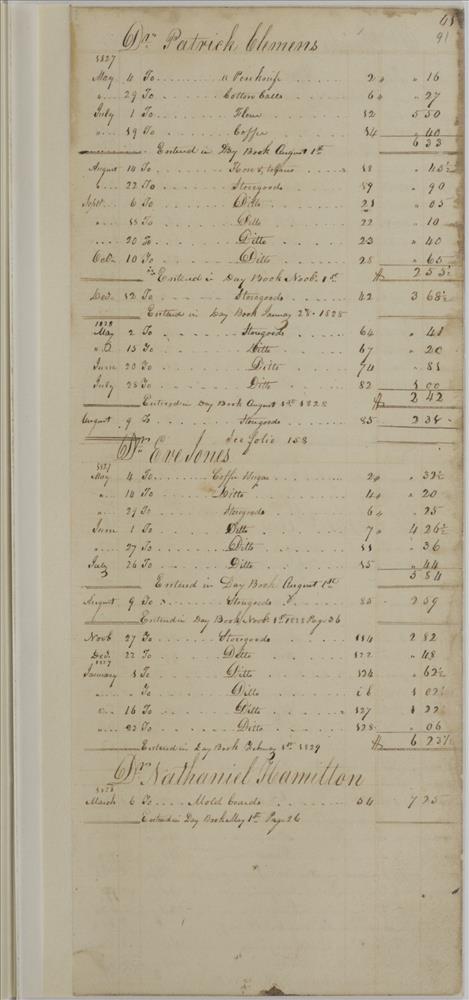 91
Dr. Patrick Clemens
1827
May 4 To a Penknife 2 " 16
" 29 To Cotton balls 6 " 27
July 1 To Flour 12 5 50
" 19 To Coffee 14 " 40
6 33
Entered in Day Book August 1st
August 14 To 18 " 45½
" 22 To Storegoods 19 " 90
Sept 6 To Ditto 21 " 05
" 18 To Ditto 22 " 10
20 To Ditto 23 " 40
Octr 10 To Ditto 28 " 65
Entered in Day Book Novbr 1st 2 55½
Decr 12 To Storegoods 42 3 68½
Entered in Day Book January 28 1828
1828
May 2 To Storegoods 64 " 41
15 To Ditto 67 " 20
June 20 To Ditto 74 " 81
July 28 To Ditto 82 1 00
Entered in Day Book August 1st 1828 2 42
August 9 To Storegoods 85 2 38
See folio 158
Dr. Eve Jones
1827
May 4 To Coffee Sugar 2 " 32½
" 14 To Ditto 4 " 20
" 29 To Storegoods 6 " 25
June 1 To Ditto 7 4 26½
" 27 To Ditto 11 " 36
July 26 To Ditto 15 " 44
5 84
Entered in Day Book August 1st
August 9 To Storegoods 85 2 59
Entered in Day Book Novbr 1st 1828 Page 36
Novbr 27 To Storegoods 114 2 82
Decr 22 To Ditto 122 " 48
1829
January 1 To Ditto 124 " 62½
" To Ditto 1 02½
" 16 To Ditto 127 1 22
" 22 To Ditto 128 " 06
Entered in Day Book February 1st 1829 6 23½
Dr. Nathaniel Hamilton
1828
March 6 To Mold boards 54 7 25
Entered in Day Book May 1st Page 26